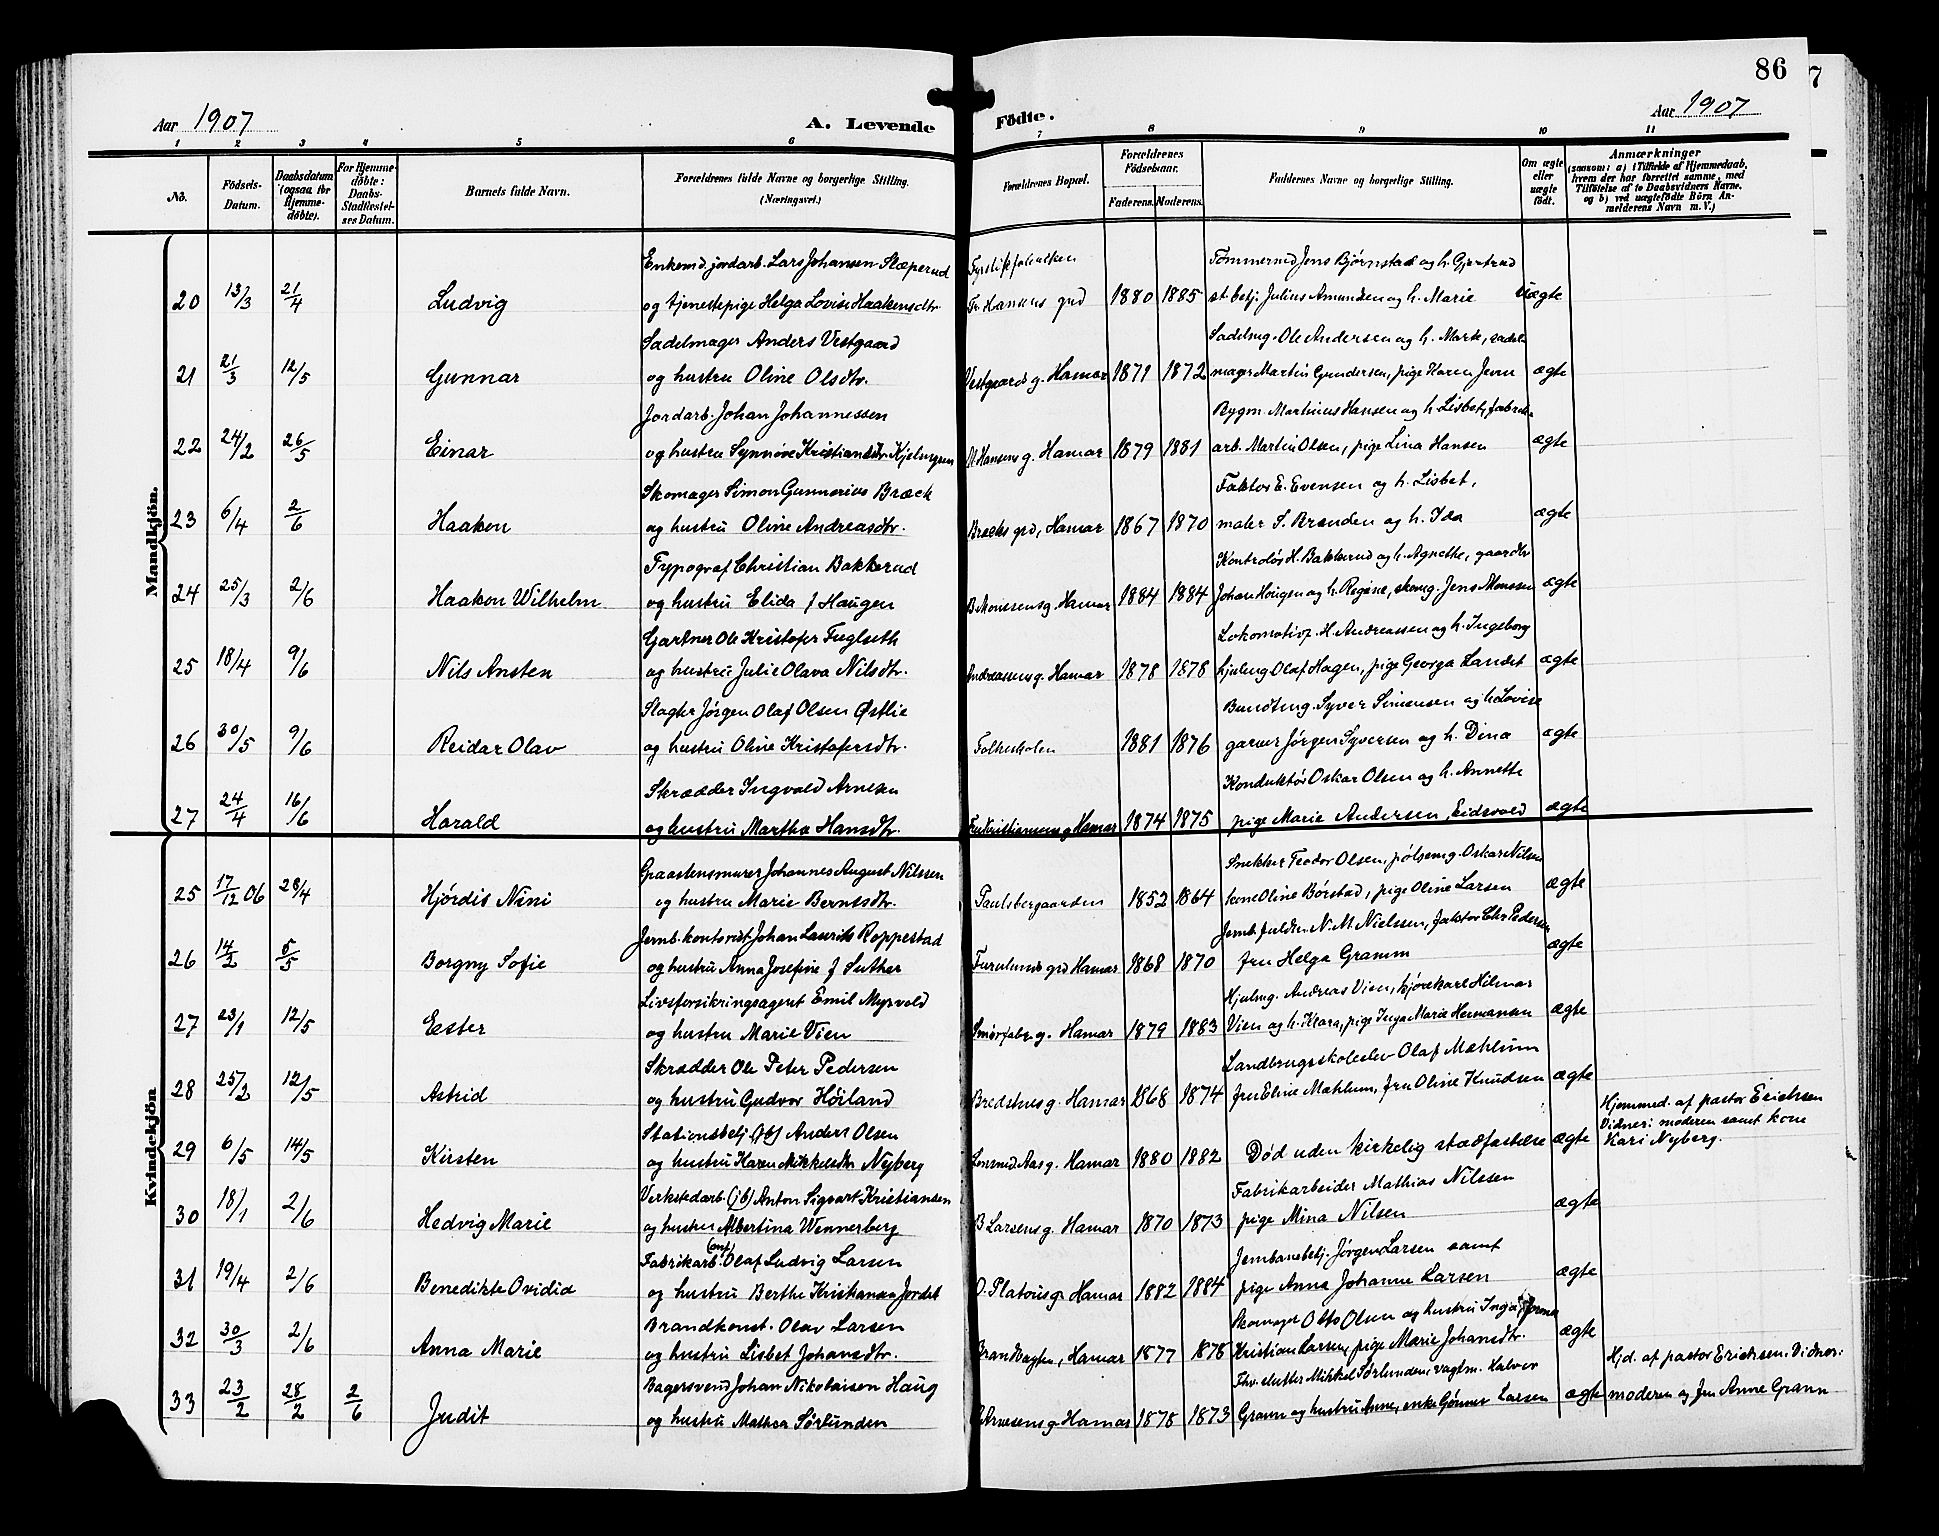 86
Aar 1907
A. Levende Födte.
Aar 1907
1 2 3 4 5 6 7 8 9 10 11
No.
Födsels-Datum.
Daabsdatum (ogsaa for Hjemme-döbte).
For Hjemme-döbte: Daabs-Stadfæstel-ses Datum.
Barnets fulde Navn.
Forældrenes fulde Navne og borgerlige Stilling. (Næringsvei.)
Forældrenes Bopæl.
Forældrenes Födselsaar.
Faderens. Moderens.
Faddernes Navne og borgerlige Stilling.
Om ægte eller uægte födt.
Anmærkninger
(saasom: a) i Tilfælde af Hjemmedaab, hvem der har forrettet samme, med Tilföielse af to Daabsvidners Navne, og b) ved uægtefödte Börn An-melderens Navn m. V.)
Mandkjön.
Enkemd. jordarb. Lars Johansen Slæperud Tømmermd Jens Bjørnstad og h. Gjertrud
20 13/3 21/4 Ludvig og tjenestepige Helga Lovise Haakensdtr. Fr. Hansens grd 1880 1885 st. betj. Julius Amundsen og h. Marie Uægte
Sadelmager Anders Vestgaard Sadelmg. Ole Andersen og h. Marte, sadel-
21 21/3 12/5 Gunnar og hustru Oline Olsdtr. Vestgaards g. Hamar 1871 1872 mager Martin Gundersen, pige Karen Jevn ægte
Jordarb. Johan Johannessen Bygm. Martinus Hansen og h. Lisbet, fabrik-
22 24/2 26/5 Einar og hustru Synnøve Kristiansdtr. Kjelmgren M Hansens g. Hamar 1879 1881 arb. Martin Olsen, pige Lina Hansen ægte
Skomager Simon Gunnerius Bræck Faktor E. Evensen og h. Lisbet,
23 6/4 2/6 Haakon og hustru Oline Andreasdtr. Bræcks grd, Hamar 1867 1870 maler S. Brænden og h. Ida ægte
Typograf Christian Bakkerud Kontrolør H. Bakkerud og h. Agnethe, gaardbr
24 25/3 2/6 Haakon Wilhelm og hustru Elida f Haugen B Monsens g. Hamar 1884 1884 Johan Haugen og h. Regine, skomg. Jens Monsen ægte
Gartner Ole Kristofer Fuglseth Lokomotivf. H. Andreassen og h. Ingeborg
25 18/4 9/6 Nils Ansten og hustru Julie Olava Nilsdtr. Andreassens g. Hamar 1878 1878 hjulmg Olaf Hagen, pige Georga Landet ægte
Slagter Jørgen Olaf Olsen Østlie Bundtmg. Syver Simensen og h Lovise
26 30/5 9/6 Reidar Olav og hustru Oline Kristofersdtr. 1881 1876 garver Jørgen Syversen og h. Dina ægte
Skrædder Ingvald Arnesen Konduktør Oskar Olsen og h. Annette
27 24/4 16/6 Harald og hustru Martha Hansdtr. Fr Kristiansens g Hamar 1874 1875 pige Marie Andersen, Eidsvold ægte
Kvindekjön
Graastensmurer Johannes August Nilssen Snekker Teodor Olsen, pølsemg. Oskar Nilsen
25 17/12 06 28/4 Hjørdis Nini og hustru Marie Berntsdtr. Paulsbergaarden 1852 1864 kone Oline Børstad, pige Oline Larsen ægte
Jernb. kontorist Johan Laurits Roppestad Jernb. fuldm. N. M Nielssen, faktor Chr Pedersen
26 14/2 5/5 Borgny Sofie og hustru Anna Josefine f Suther Furulunds grd Hamar 1868 1870 fru Helga Gramm ægte
Livsforsikringsagent Emil Myrvold Hjulmg. Andreas Vien, kjørekarl Hilmar
27 23/1 12/5 Ester og hustru Marie Vien Smørfabr g. Hamar 1879 1883 Vien og h. Klara, pige Inga Marie Hermansen ægte
Skrædder Ole Peter Pedersen Landbrugsskoleelev Olaf Mæhlum
28 25/2 12/5 Astrid og hustru Gudvor Høiland Bredstues g. Hamar 1868 1874 fru Eline Mæhlum, fru Oline Knudsen ægte
Hjemmed. af pastor Erichsen
Stationsbetj (jb) Anders Olsen Vidner: moderen samt kone
29 6/5 14/5 Kirsten og hustru Karen Mikkelsdtr Nyberg Lensmd Aas g. Hamar 1880 1882 Død uden kirkelig stadfæstelse ægte Kari Nyberg.
Verkstedarb. (jb) Anton Sigvart Kristiansen Fabrikarbeider Mathias Nilssen
30 18/1 2/6 Hedvig Marie og hustru Albertina Wennerberg B Larsens g. Hamar 1870 1873 pige Mina Nilsen ægte
Fabrikarb. Olaf Ludvig Larsen Jernbanebetj. Jørgen Larsen samt
31 19/4 2/6 Benedikte Ovidia og hustru Berthe Kristiansen Jordet O. Platous g. Hamar 1882 1884 pige Anna Johanne Larsen ægte
Brandkonst. Olav Larsen Skomager Otto Olsen og hustru Inga,
32 30/3 2/6 Anna Marie og hustru Lisbet Johansdtr. Brandvagten, Hamar 1877 1878 Kristian Larsen, pige Marie Johansdtr. ægte
Bagersvend Johan Nikolaisen Haug Fhv. slutter Mikkel Sørlunden, vagtm. Halvor Hjd. af pastor Erichsen. Vidner:
33 23/2 28/2 2/6 Judit og hustru Mathea Sørlunden Arnesens g. Hamar 1878 1873 Grann og hustru Anne, enke Gønner Larsen ægte moderen og fru Anne Grann